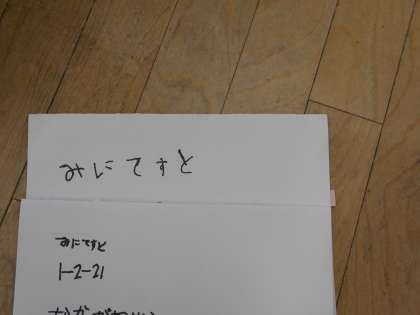 みにてすと
みにてすと
1-2-21